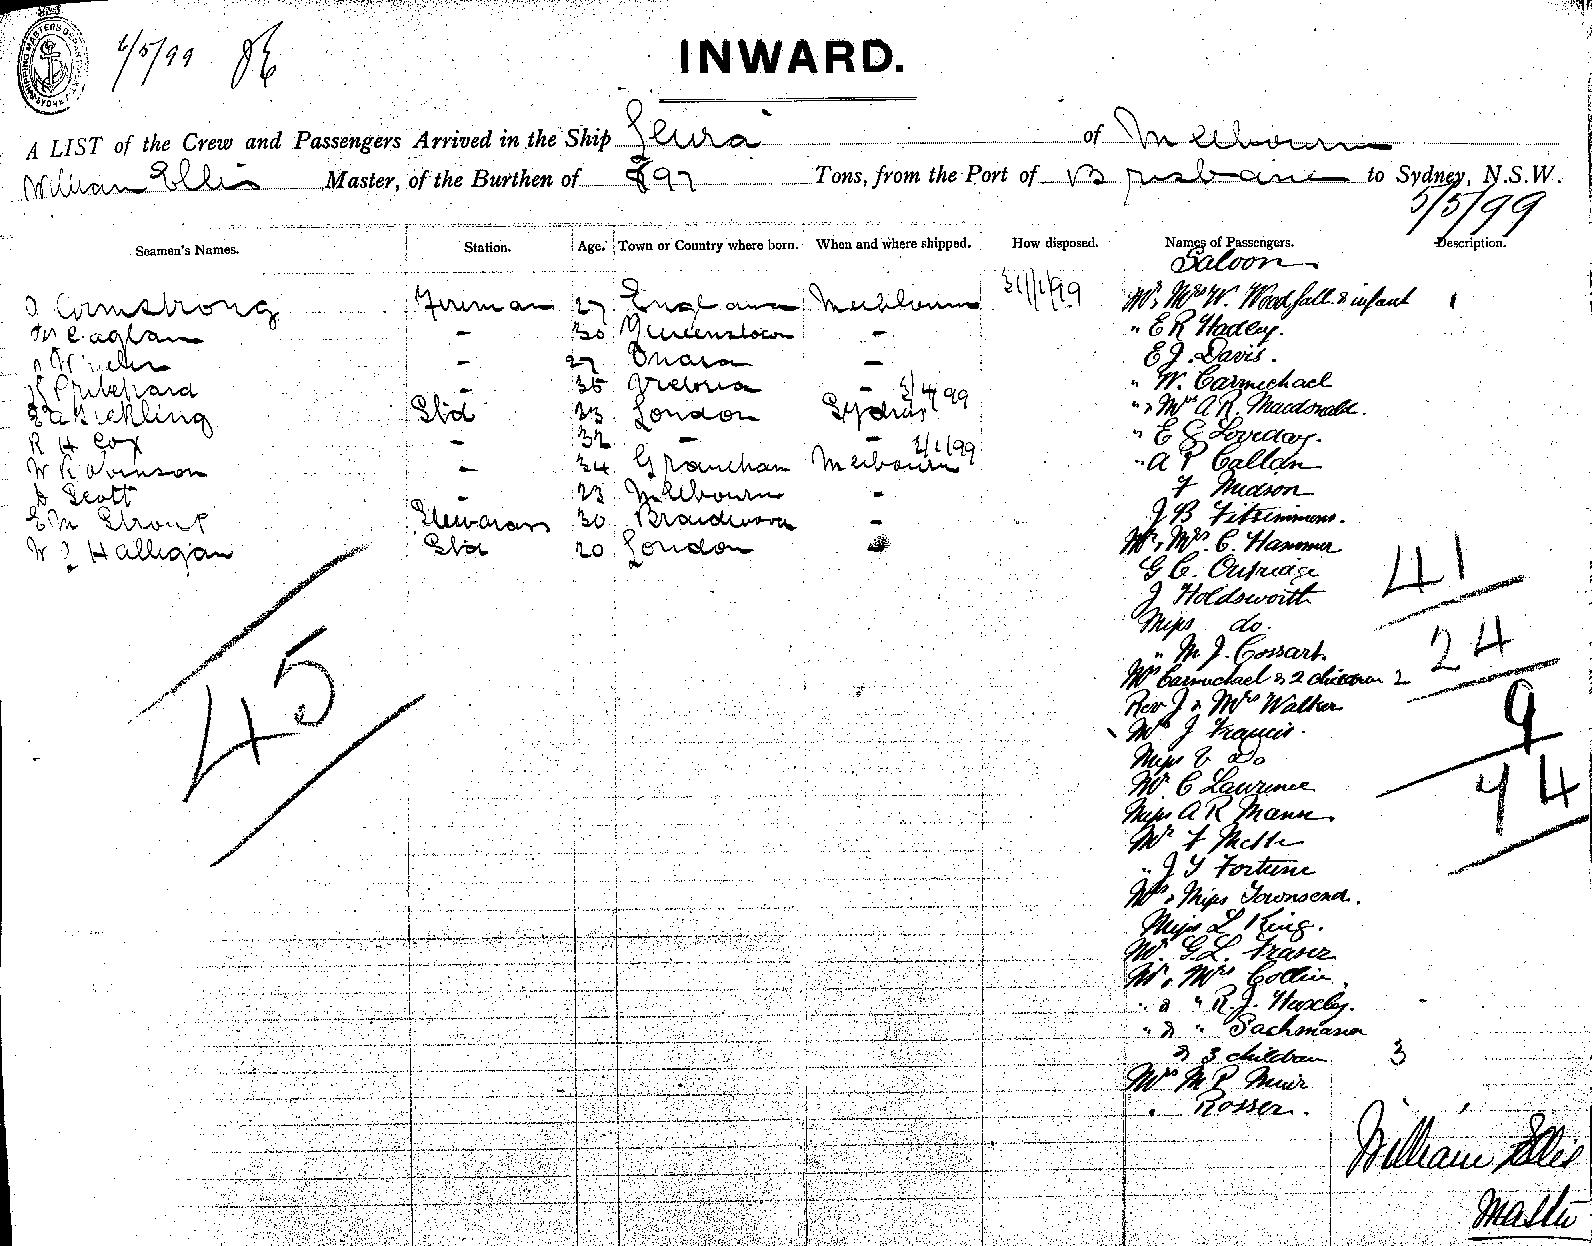 6/5/99
INWARD.
A LIST of the Crew and Passengers Arrived in the Ship Leura of Melbourne
William Ellis Master, of the Burthen of 897 Tons, from the Port of Brisbane to Sydney, N.S.W.
5/5/99
Seamen's Names. Station. Age. Town or Country where born. When and where shipped. How disposed. Names of Passengers. Description.
Saloon
Armstrong Fireman 27 England Melbourne 31/1/99
30 Queenstown -
- 27 -
Pritchard - 35 Victoria -
Bickling Std 23 London Sydney 3/4/99
R H Cox - 32 - -
W Robinson - 34 Grantham Melbourne 31/1/99
Scott - 23 Melbourne -
E M Stewardess 30 Braidwood -
W J Halligan Std 20 London -
45
Mr & Mrs W. Woodfall & infant 1
" E R Hadley.
E J. Davis.
" W. Carmichael
" & Mrs A R. Macdonald.
" E G Loveday.
" A P Callan
F Hudson
J B Fitzsimmons.
Mr & Mrs C. Hanmer
G C. Outridge
J Holdsworth
Miss do.
" M J. Cossart.
Mrs Carmichael & 2 children 2
Rev J & Mrs Walker
Mrs J Francis.
Miss V Do
Mr C Lawrence
Miss A R Mann.
Mr F
" J Y Fortune
Mrs & Miss Townsend.
Miss L King.
Mr. G. L. Fraser
Mr & Mrs Collin
" & " R. J. Huxley.
" & " Bachmann
& 3 children 3
Mrs M P Muir
" Rosser.
41
24
9
74
William Ellis
Master